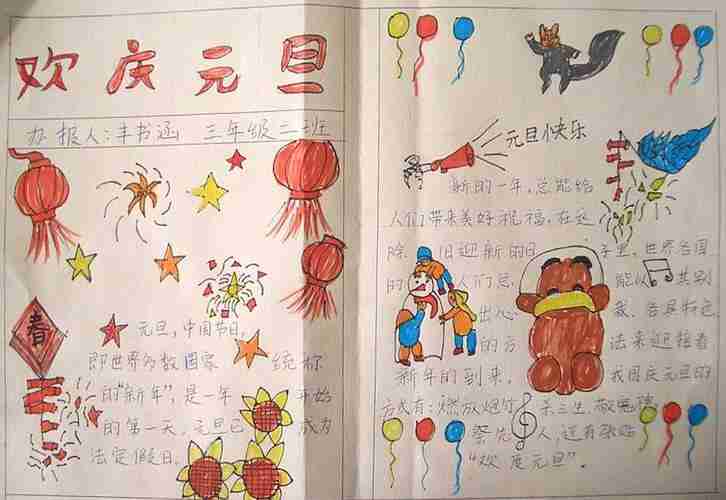 欢庆元旦
办报人:丰书涵 三年级二班
春
元旦,中国节日,
即世界多数国家 统称
的“新年”,是一年 开始
的第一天,元旦已 成为
法定假日。
元旦快乐
新的一年,总能给
人们带来美好祝福,在这
除 旧迎新的日 子里,世界各国
的 人们总 能以 其别
出心 裁、各具特色
的方 法来迎接着
新年的到来。 我国庆元旦的
方式有:燃放烟竹 杀三生,敬
祭 人,还有张贴
“欢度元旦”。